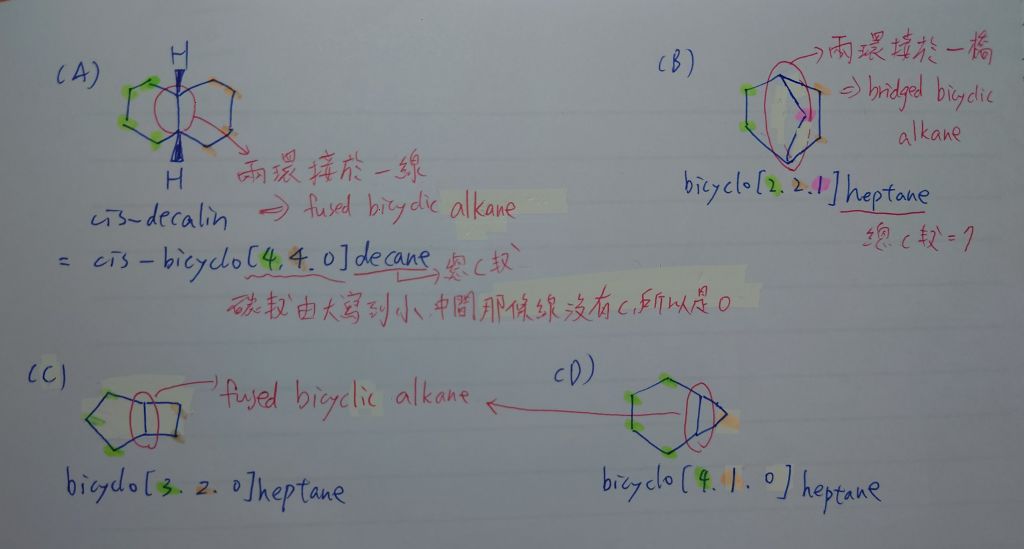 (A)
H
H
兩環接於一線
⇒ fused bicyclic alkane
cis-decalin
= cis-bicyclo[4.4.0]decane → 總C數
碳數由大寫到小,中間那條線沒有C,所以是0
(B)
兩環接於一橋
⇒ bridged bicyclic
alkane
bicyclo[2.2.1]heptane
總C數=7
(C)
fused bicyclic alkane
bicyclo[3.2.0]heptane
(D)
bicyclo[4.1.0]heptane